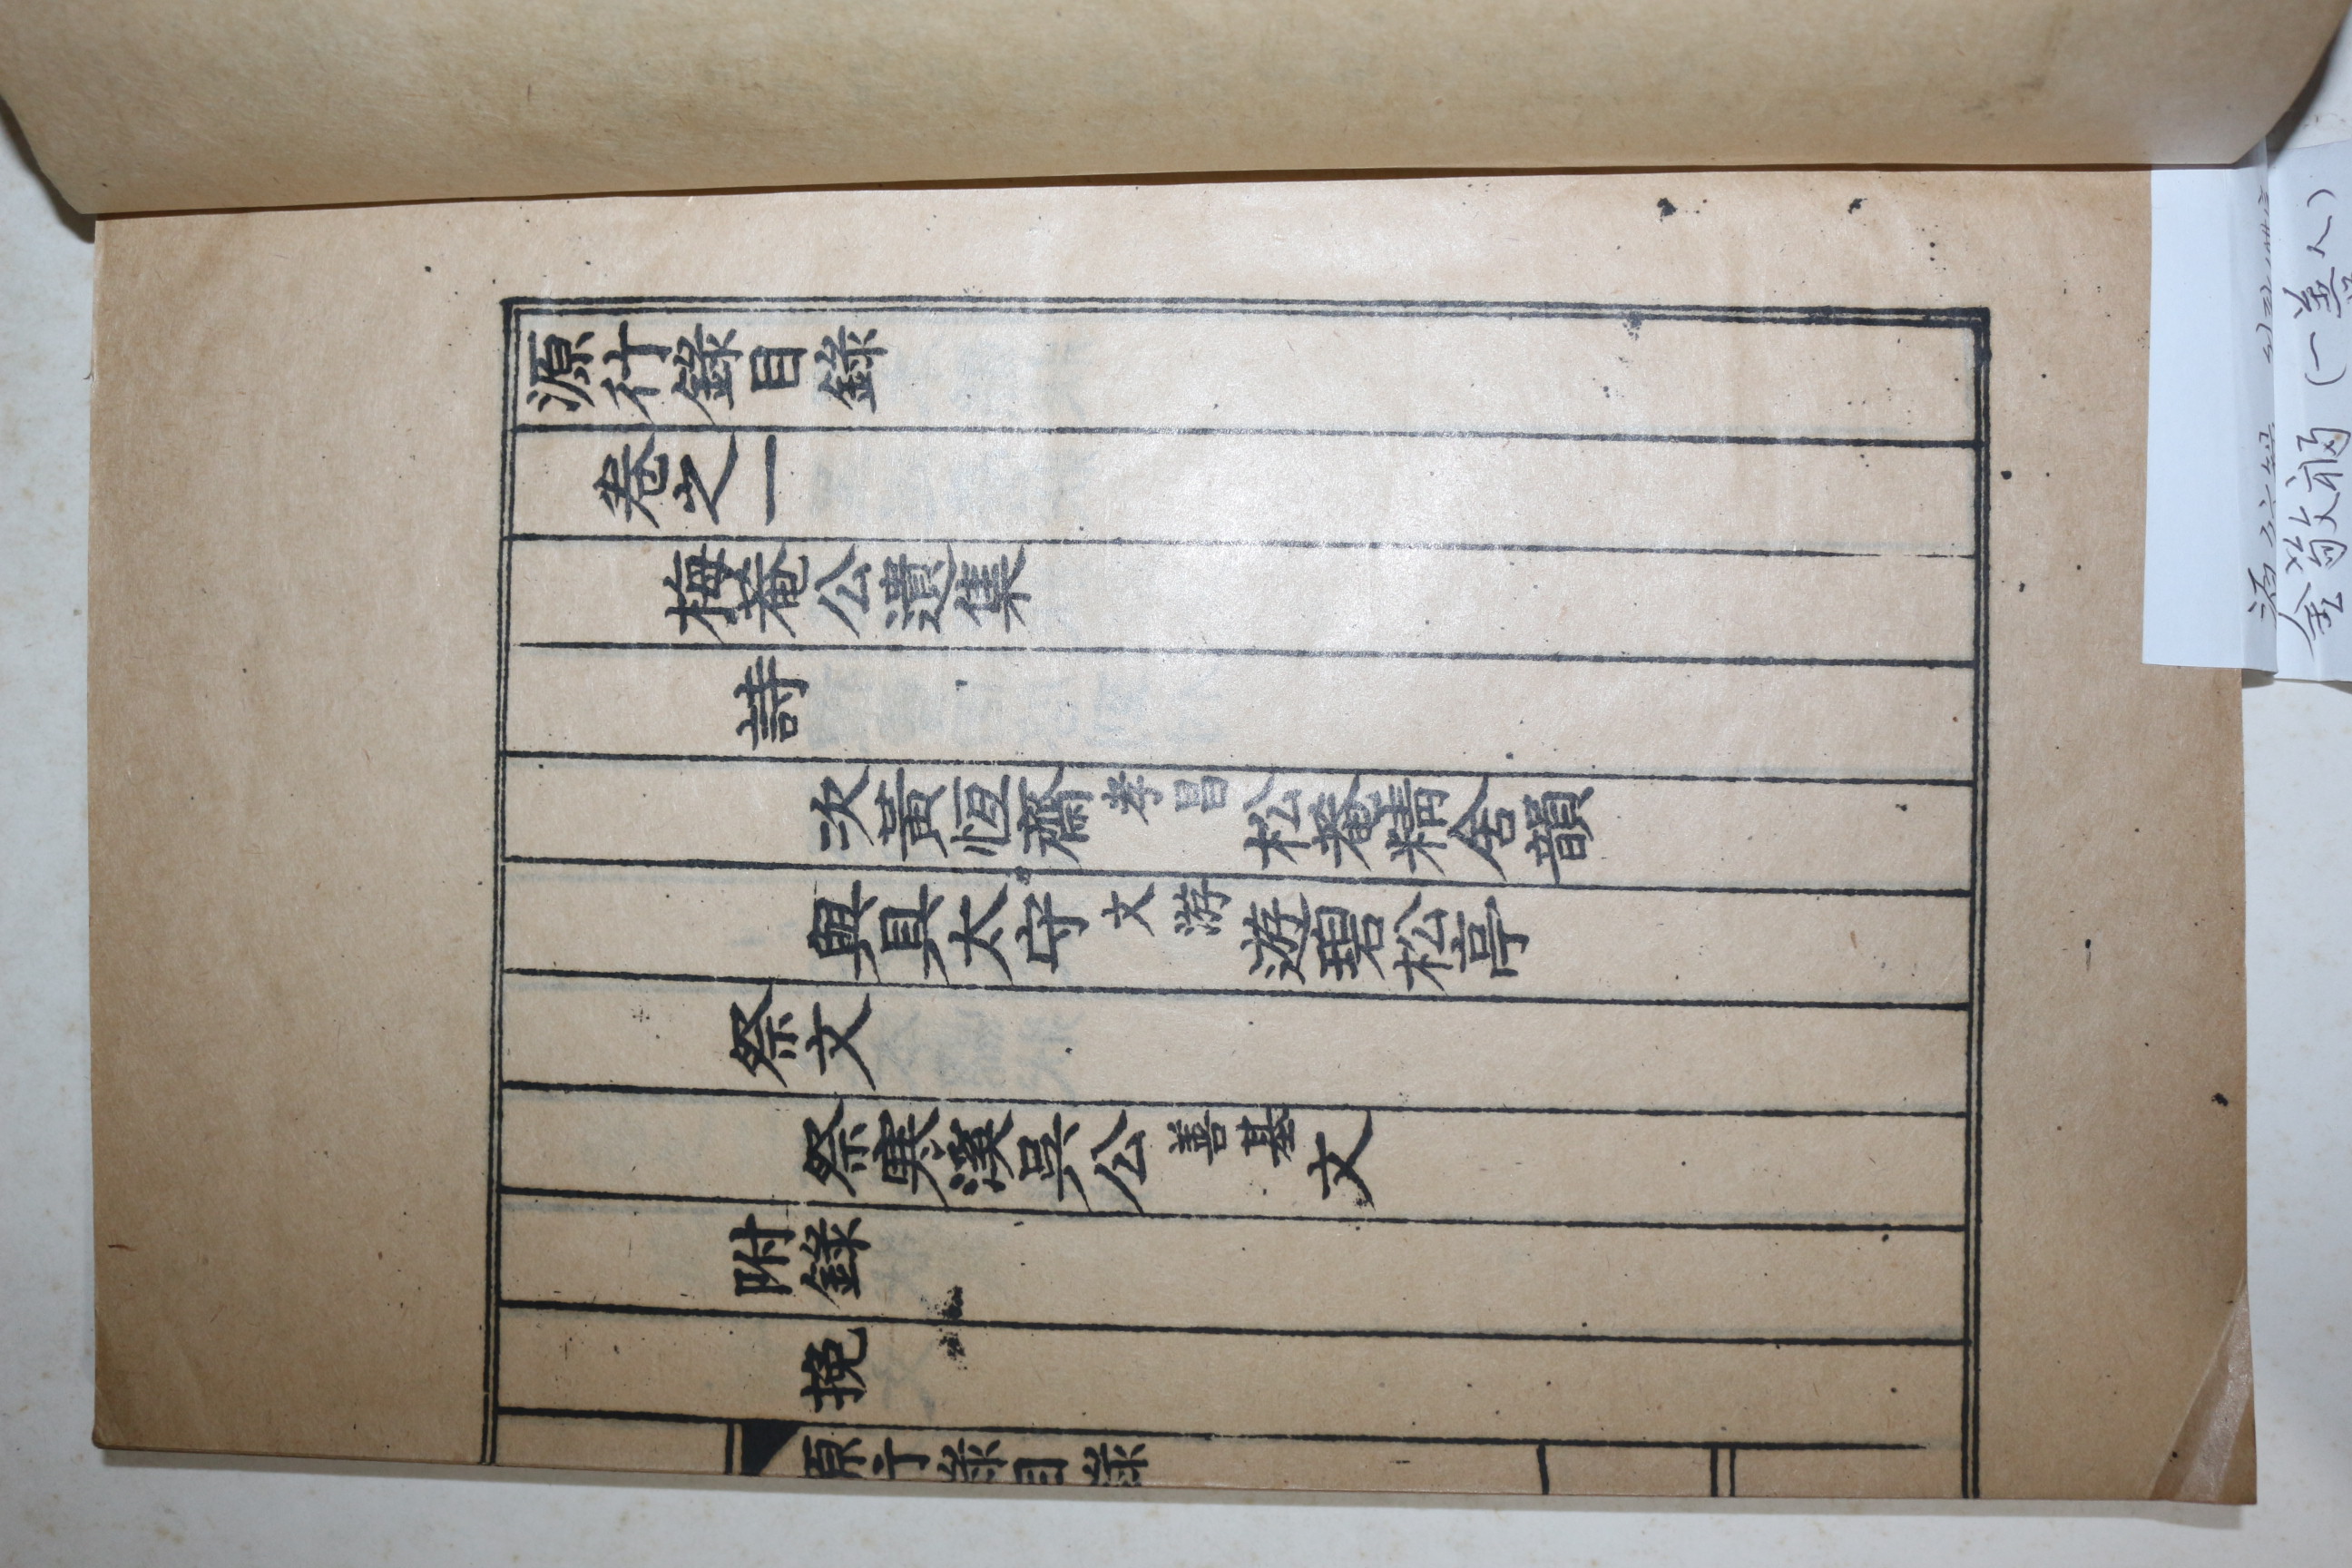 源行錄目錄
卷之一
梅菴公遺集
詩
次黃恒齋孝昌松菴精舍韻
與具太守文游遊碧松亭
祭文
祭寒溪吳公善基文
附錄
挽
源行錄目錄
(一善人)